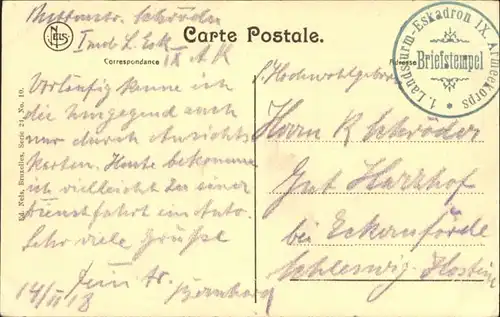 Schröder
I. Landst. Esk.
IX A K
Carte Postale.
Correspondance
Adresse
1. Landsturm-Eskadron IX. Armeekorps
Briefstempel
Ed. Nels, Bruxelles, Serie 21, No. 10.
Vorläufig kenne ich
die Umgegend auch
nur durch Ansichts
Karten. Heute bekomme
ich vielleicht zu einer
Dienstfahrt ein Auto.
Sehr viele Grüße
Dein tr.
Bernhard
14/II 18
S. Hochwohlgeboren
Herrn R Schröder
Gut Harzhof
bei Eckernförde
Schleswig-Holstein